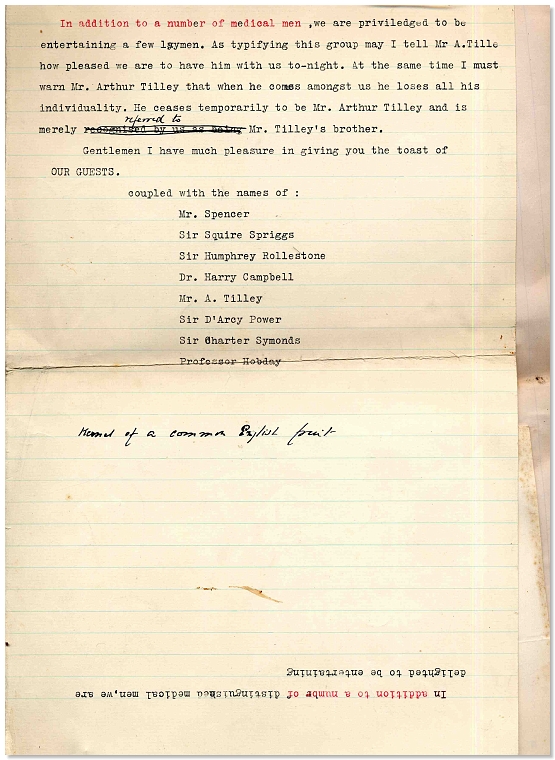 In addition to a number of medical men ,we are priviledged to be
entertaining a few laymen. As typifying this group may I tell Mr A.Tille
how pleased we are to have him with us to-night. At the same time I must
warn Mr. Arthur Tilley that when he comes amongst us he loses all his
individuality. He ceases temporarily to be Mr. Arthur Tilley and is
referred to
merely recognised by us as being Mr. Tilley's brother.
Gentlemen I have much pleasure in giving you the toast of
OUR GUESTS.
coupled with the names of :
Mr. Spencer
Sir Squire Spriggs
Sir Humphrey Rollestone
Dr. Harry Campbell
Mr. A. Tilley
Sir D'Arcy Power
Sir Charter Symonds
Professor Hobday
Kernel of a common English fruit
In addition to a numbr of distinguished medical men,we are
delighted to be entertaining